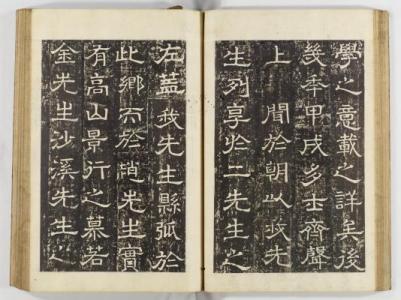 學之意載之詳矣後
幾年甲戌多士齊聲
上聞於朝以我先
生列享於二先生之
左蓋我先生縣弧於
此鄉而於簡先生實
有高山景行之慕若
金先生沙溪先生之